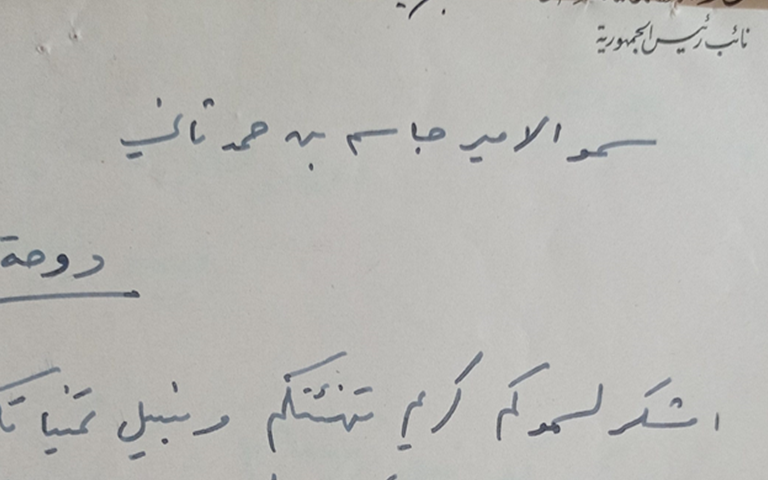 نائب رئيس الجمهورية
سمو الامير جاسم بن حمد ثاني
دوحة
اشكر لسموكم كريم تهنئتكم ونبيل تمنياتكم